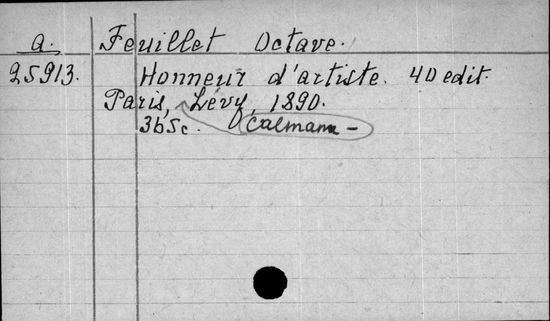 a. Feuillet Octave.
25913. Honneur d'artiste. 40 edit.
Paris, Lévy, 1890.
365c. Calmann –